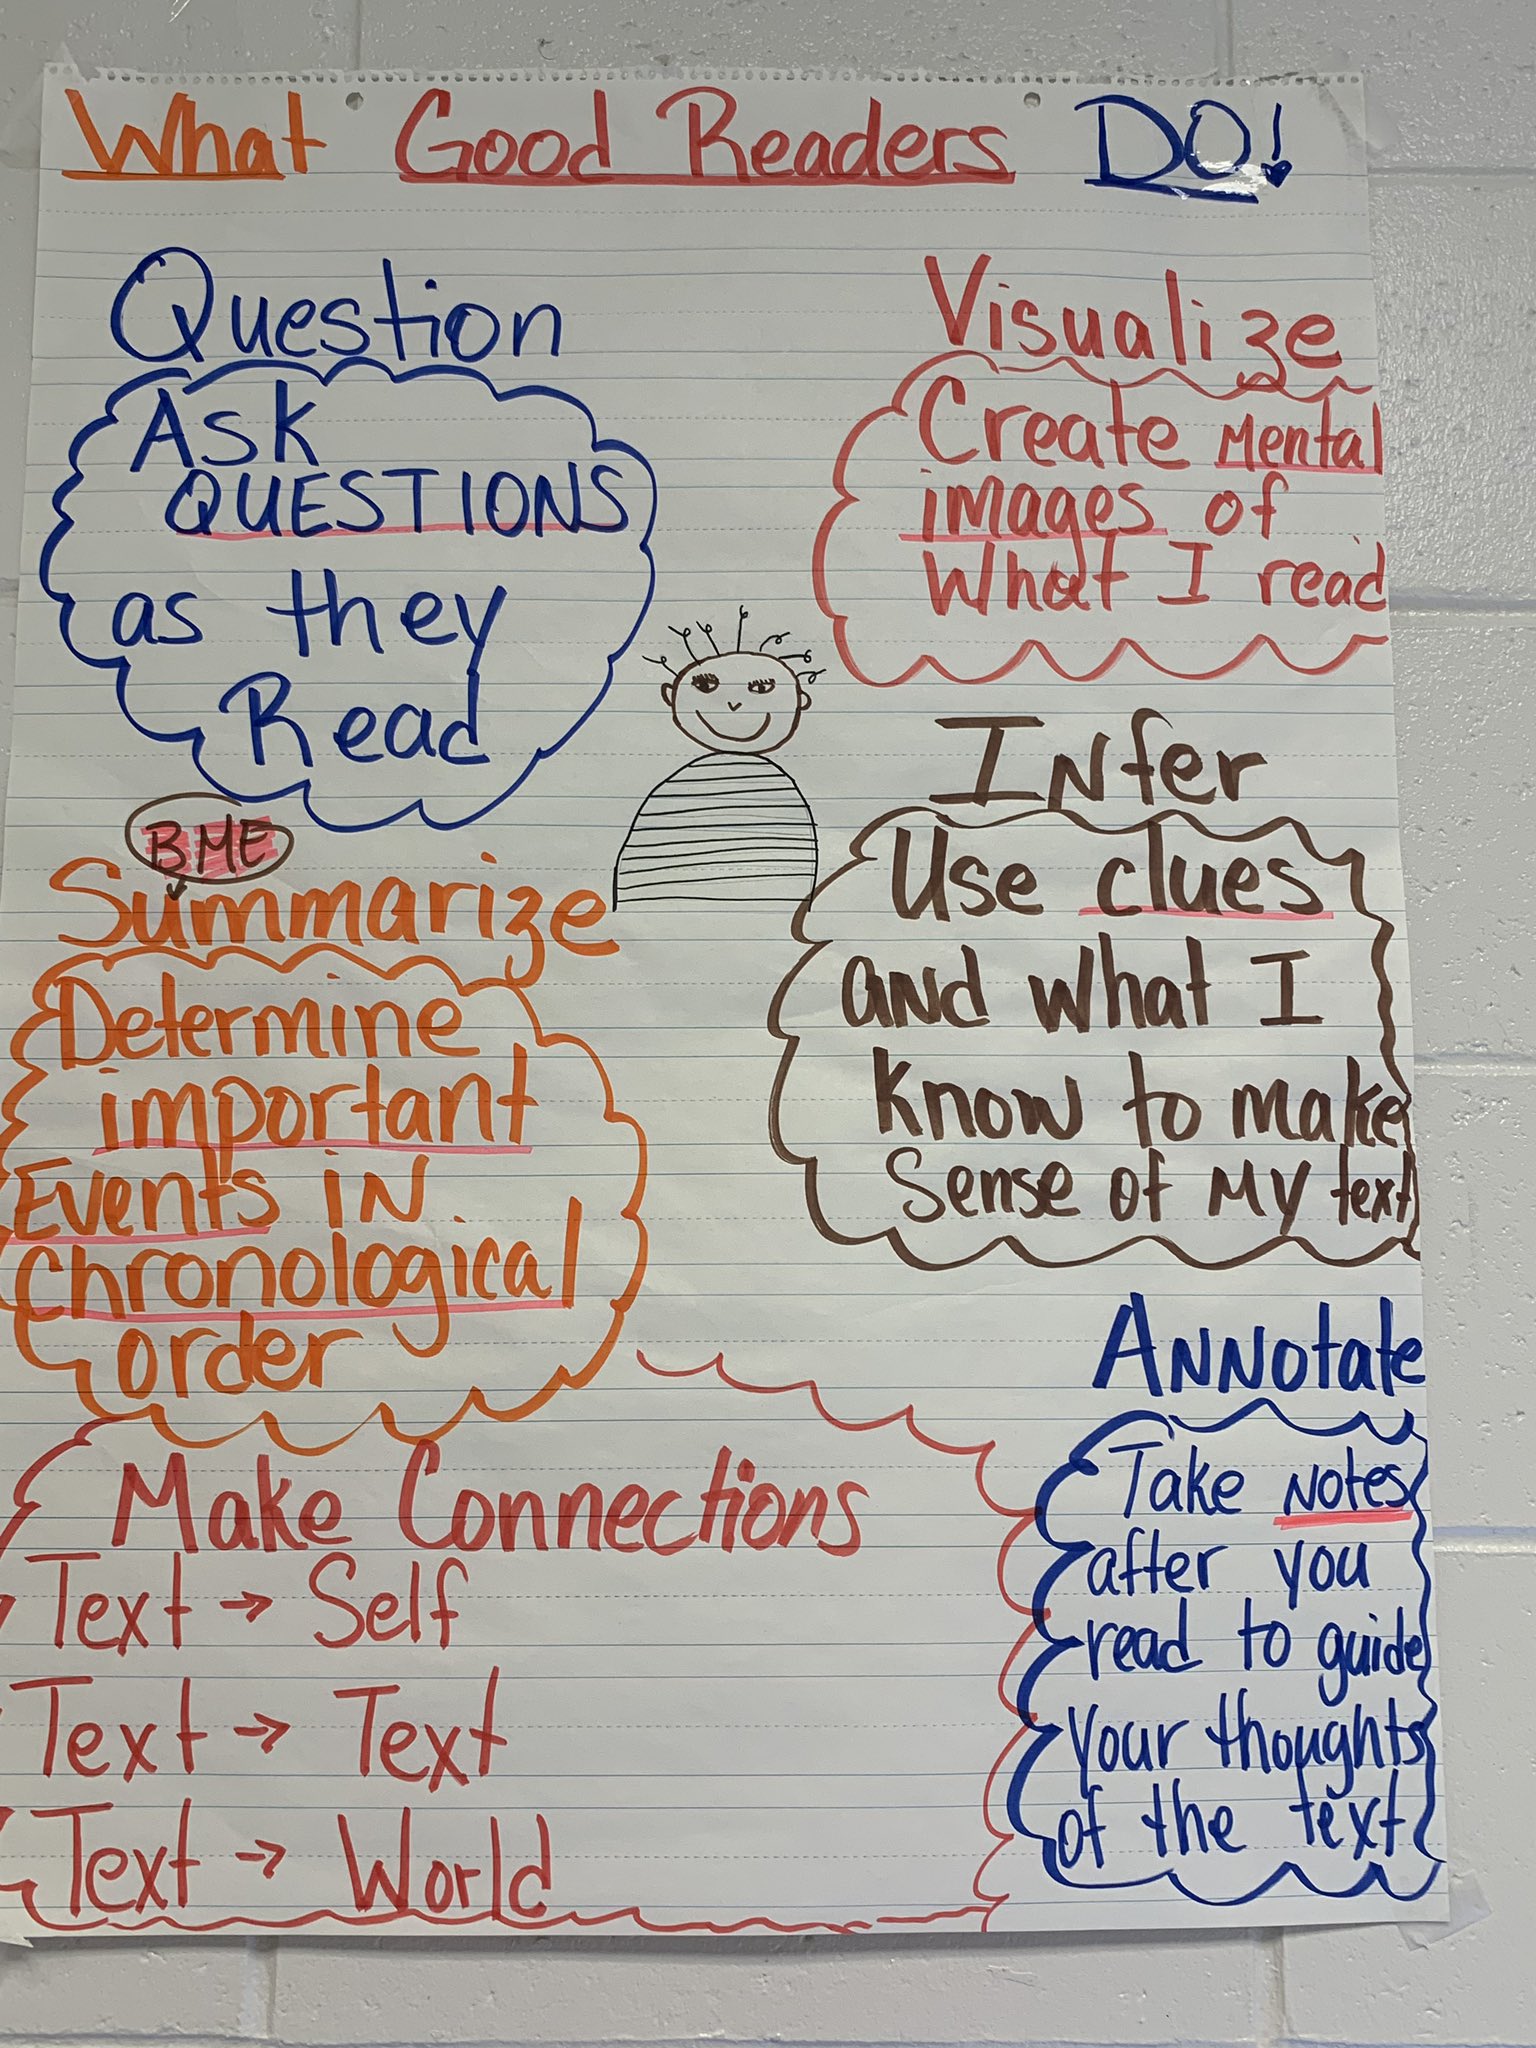 What Good Readers DO!
Question
Ask
QUESTIONS
as they
Read
BME
Summarize
Determine
important
Events in
chronological
order
Make Connections
Text → Self
Text → Text
Text → World
Visualize
Create Mental
images of
What I read
Infer
Use clues
and what I
know to make
Sense of My text
Annotate
Take notes
after you
read to guide
your thoughts
of the text